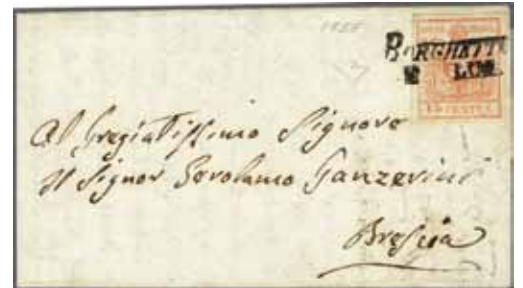 1855
BORGHETTO
15 CENTES
Al Pregiatissimo Signore
Il Signor Gerolamo Ganzerini
Brescia